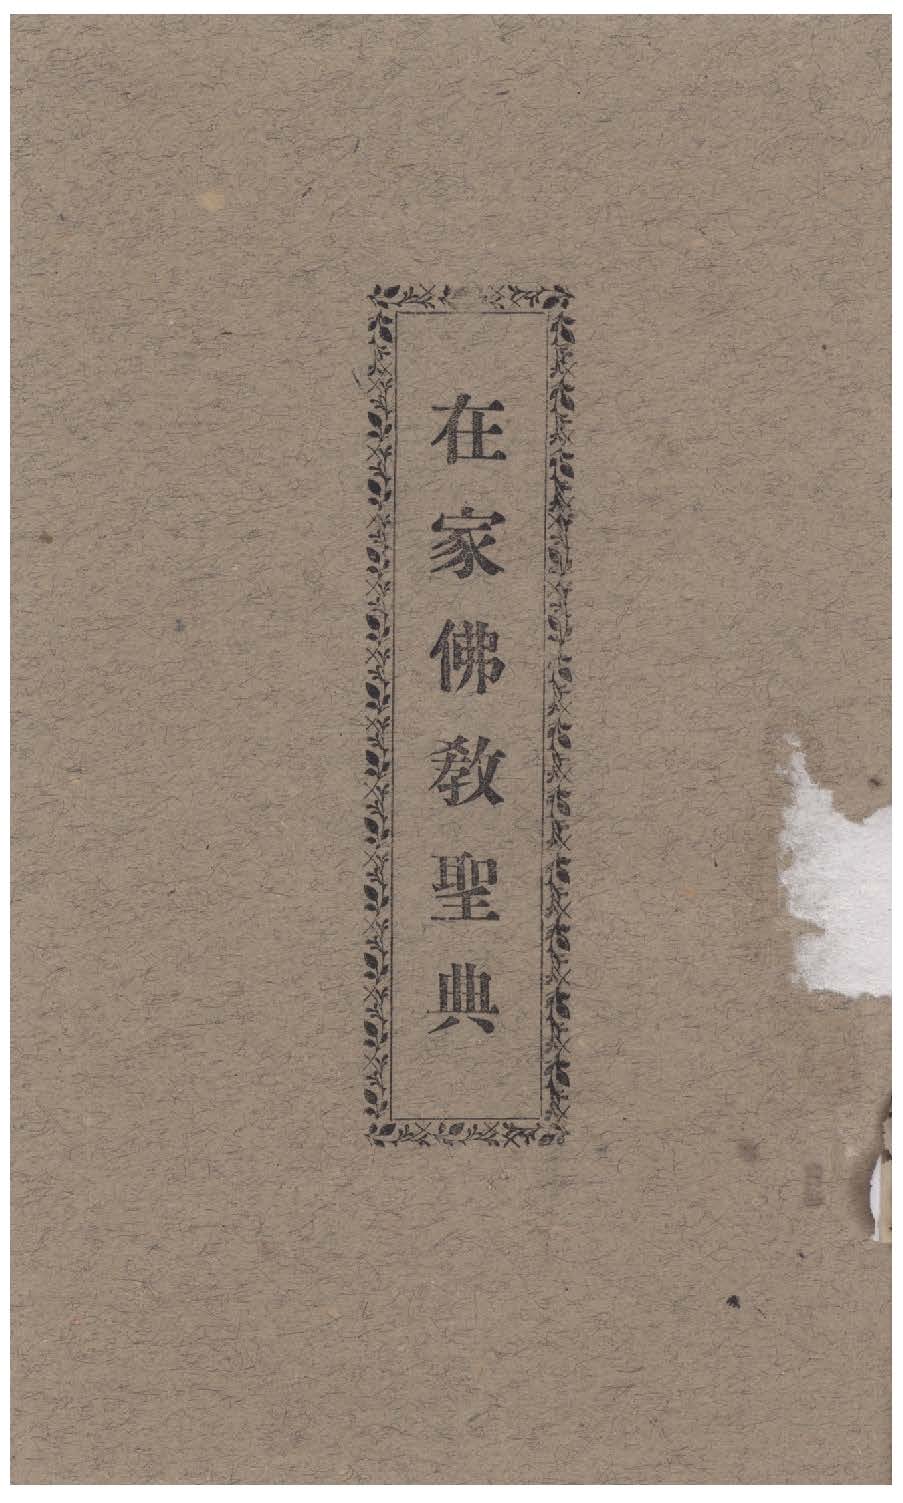 在家佛敎聖典